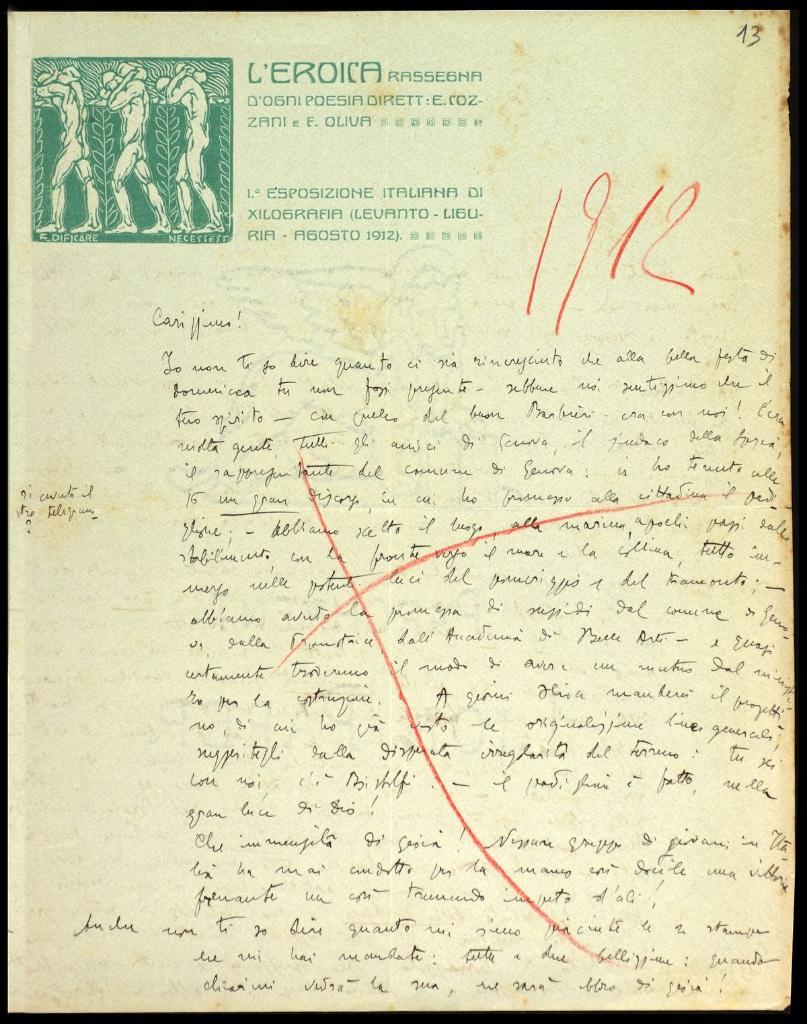 13
L'EROICA RASSEGNA
D'OGNI POESIA DIRETT: E. COZ-
ZANI E F. OLIVA
I.ª ESPOSIZIONE ITALIANA DI
XILOGRAFIA (LEVANTO - LIGU-
RIA - AGOSTO 1912).
EDIFICARE NECESSE EST
1912
Carissimo!
Io non ti so dire quanto ci sia rincresciuto che alla bella festa di
domenica tu non fossi presente - sebbene noi sentissimo che il
tuo spirito - con quello del buon Barbieri - era con noi! C'era
molta gente, tutti gli amici di Genova, il sindaco della Spezia,
il rappresentante del comune di Genova: io ho tenuto alle
16 un gran discorso, in cui ho promesso alla cittadina il padi-
glione; - abbiamo scelto il luogo, alla marina, a pochi passi dallo
stabilimento, con la fronte verso il mare e la collina, tutto im-
merso nelle potenti luci del pomeriggio e del tramonto; -
abbiamo avuto la promessa di sussidi dal comune di Geno-
va, dalla Promotrice, dall'Accademia di Belle Arti - e quasi
certamente troveremo il modo di avere un mutuo dal
per la costruzione. A giorni Oliva manderà il progetti-
no, di cui ho già visto le originalissime linee generali,
suggeritegli dalla disperata irregolarità del terreno: tu sei
con noi, c'è Bistolfi. - il padiglione è fatto, nella
gran luce di Dio!
Che immensità di gioia! Nessun gruppo di giovani in Ita-
lia ha mai condotto per la mano così docile una vittoria
fremente un così tremendo impeto d'ali!
Anche non ti so dire quanto mi sieno piaciute le 2 stampe
che mi hai mandate: tutte e due bellissime: quando
vedrà la sua, ne sarà ebbro di gioia!
avuto il
tro telegram-
?